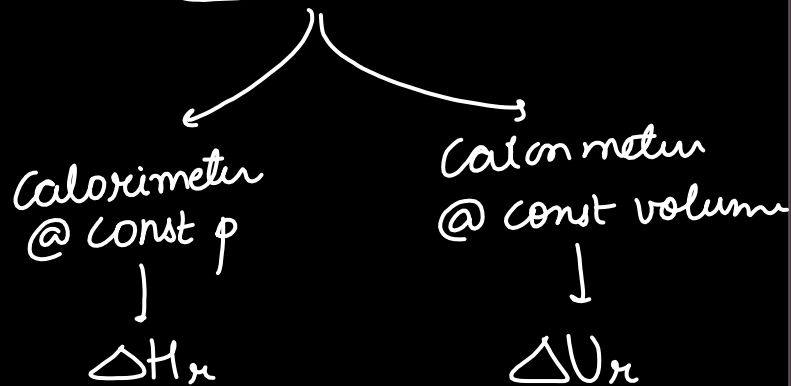 Calorimeter
@ const p
ΔHr
Calorimeter
@ const volume
ΔUr